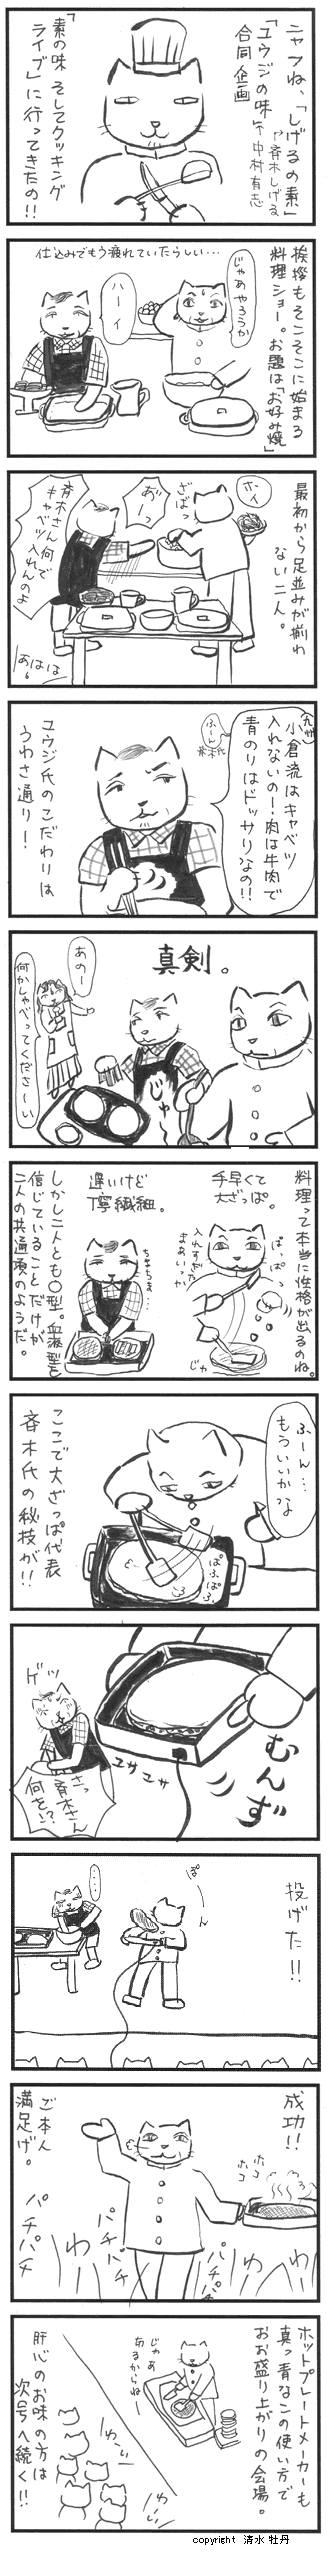 ニャつね、「しげるの素」
↑斉木しげる
「ユウジの味」
↑中村有志
合同企画
「素の味 そしてクッキング
ライブ」に行ってきたの!!
挨拶もそこそこに始まる
料理ショー。お題は「お好み焼」
仕込みでもう疲れていたらしい…
じゃあやろうか
ハーイ
最初から足並みが揃わ
ない二人。
ホイ
ざばっ
あ"ーっ
斉木さん何で
キャベツ入れんのよ
あはは
(九州)小倉流はキャベツ
入れないの!肉は牛肉で
青のりはドッサリなの!!
ふーん
斉木氏
ユウジ氏のこだわりは
うわさ通りー!
真剣。
じゅー
あのー
何かしゃべってくださーい
料理って本当に性格が出るのね。
手早くて
大ざっぱ。
ぱっぱっ
入れすぎた
まあいっか
ジャ
遅いけど
丁寧繊細。
ちまちま…
しかし二人とも○型。血液型を
信じていることだけが
二人の共通項のようだ。
ふーん…
もういいかな
ぱふぱふ
ここで大ざっぱ代表
斉木氏の秘技が!!
むんず
ユサユサ
ゲッ
さっ
斉木さん
何を!?
投げた!!
ぽーん
…
成功!!
ホコホコ
ご本人
満足げ。
パチパチ
パチパチ
パチパチ
わー
わー
ホットプレートメーカーも
真っ青なこの使い方で
おお盛り上がりの会場。
じゃあ
あるからねー
わーい
わーい
肝心のお味の方は
次号へ続く!!
copyright 清水 牡丹